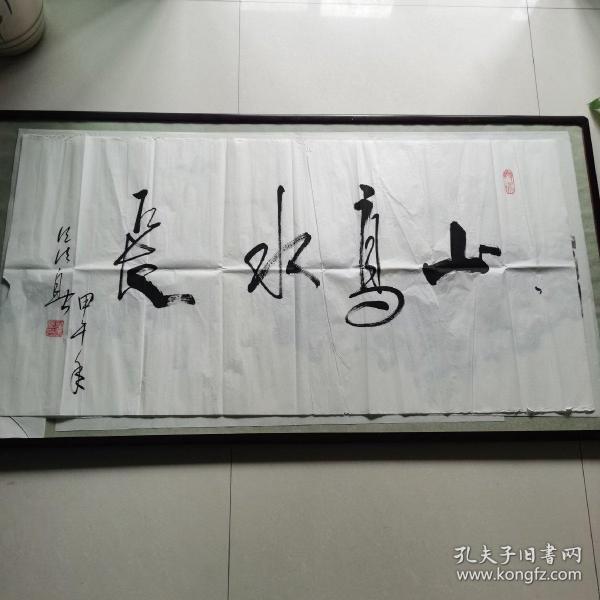 山高水長
甲午年
孔夫子旧书网
www.kongfz.com